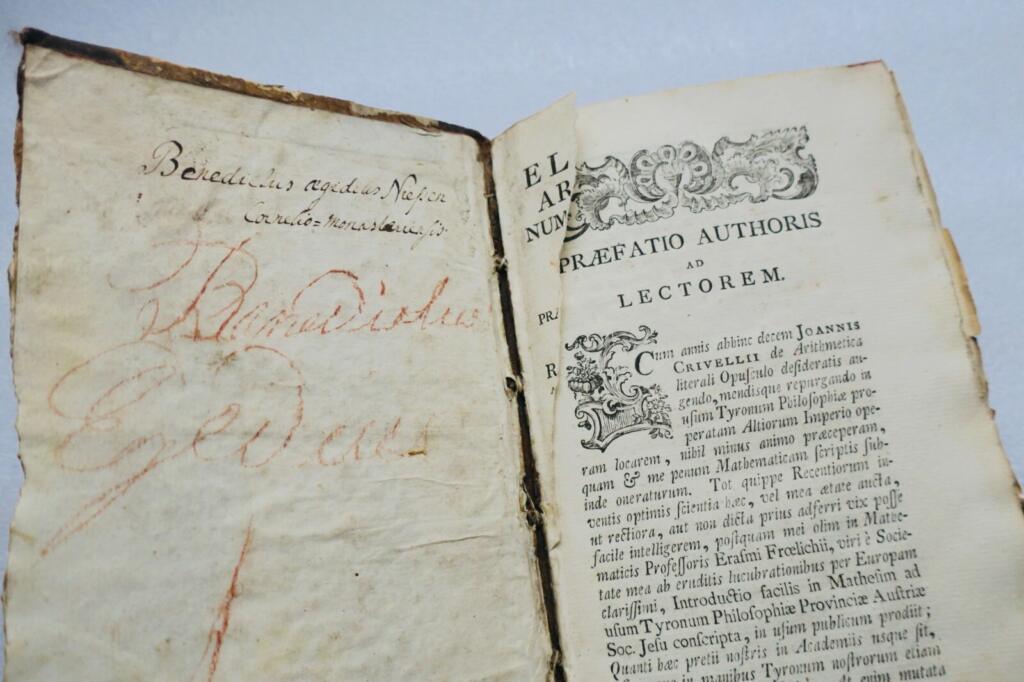 Benedictus ægedius Nießen
Cornelio=monasteriensis
Benedictus
Egedius
EL
AR
NUM
PRÆ
R
PRÆFATIO AUTHORIS
AD
LECTOREM.
Cum annis abbinc decem JOANNIS
CRIVELLII de Arithmetica
literali Opuſculo deſideratis au-
gendo, mendisque repurgando in
uſum Tyronum Philoſophiæ pro-
peratam Altiorum Imperio ope-
ram locarem, nihil minus animo præceperam,
quam & me penum Mathematicam ſcriptis ſub-
inde oneraturum. Tot quippe Recentiorum in-
ventis optimis ſcientia hæc, vel mea ætate aucta,
ut rectiora, aut non dicta prius adferri vix poſſe
facile intelligerem, poſtquam mei olim in Mathe-
maticis Profeſſoris Erasmi Frœlichii, viri è Socie-
tate mea ab eruditis lucubrationibus per Europam
clariſſimi, Introductio facilis in Matheſim ad
uſum Tyronum Philoſophiæ Provinciæ Auſtriæ
Soc. Jeſu conſcripta, in uſum publicum prodiit;
Quanti hæc pretii noſtris in Academiis usque ſit,
in manibus Tyronum noſtrorum etiam
At enim mutata